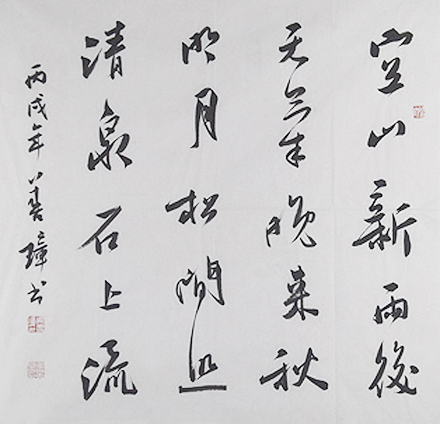 空山新雨後
天氣晚來秋
明月松間照
清泉石上流
丙戌年善璋书